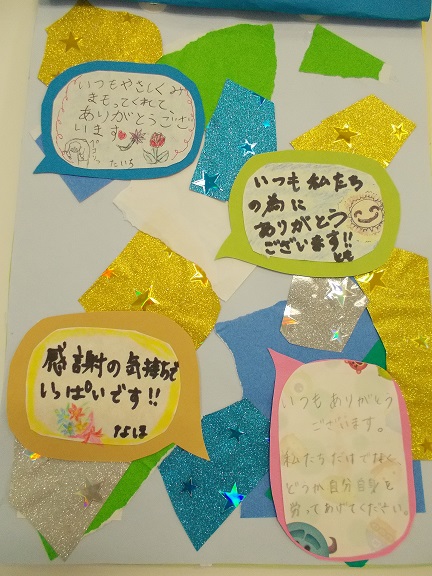 いつもやさしくみ
まもってくれて
ありがとうござ
います
たいち
いつも私たち
の為に
ありがとう
ございます!!
とも
感謝の気持ちで
いっぱいです!!
なほ
いつもありがとう
ございます。
私たちだけでなく
どうか自分自身を
労ってあげてください。